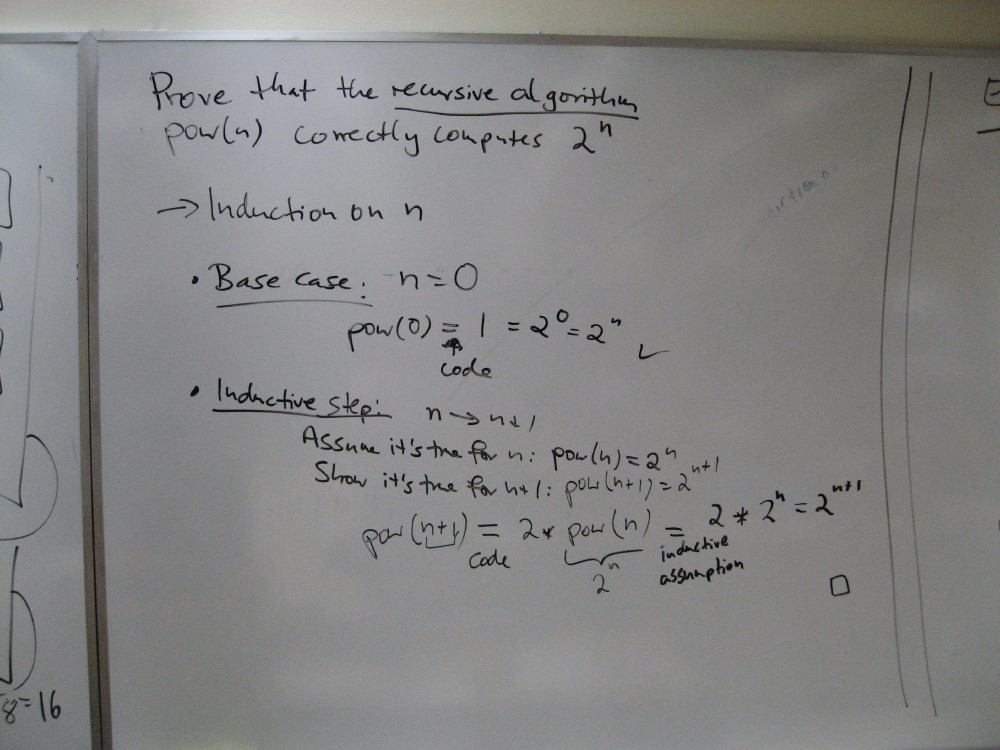 Prove that the recursive algorithm
pow(n) correctly computes 2^n
→ Induction on n
• Base case: n=0
pow(0) = 1 = 2^0 = 2^n ✓
code
• Inductive step: n → n+1
Assume it's true for n: pow(n) = 2^n
Show it's true for n+1: pow(n+1) = 2^{n+1}
pow(n+1) = 2* pow(n) = 2 * 2^n = 2^{n+1}
code 2^n inductive
assumption
□
8=16